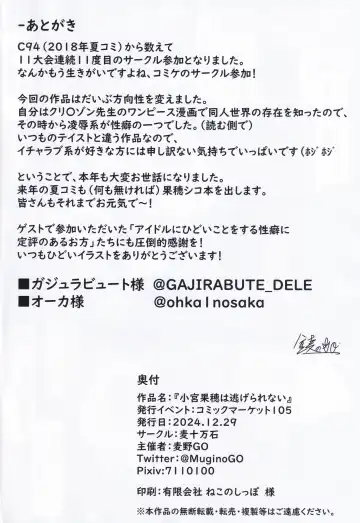 -あとがき
C94(2018年夏コミ)から数えて
11大会連続11度目のサークル参加となりました。
なんかもう生きがいですよね、コミケのサークル参加!
今回の作品はだいぶ方向性を変えました。
自分はクリ〇ゾン先生のワンピース漫画で同人世界の存在を知ったので、
その時から凌辱系が性癖の一つでした。(読む側で)
いつものテイストと違う作品なので、
イチャラブ系が好きな方には申し訳ない気持ちでいっぱいです(ﾎｼﾞﾎｼﾞ
ということで、本年も大変お世話になりました。
来年の夏コミも(何も無ければ)果穂シコ本を出します。
皆さんもそれまでお元気で~!
ゲストで参加いただいた「アイドルにひどいことをする性癖に
定評のあるお方」たちにも圧倒的感謝を!
いつもひどいイラストをありがとうございます!
■ガジュラビュート様 @GAJIRABUTE_DELE
■オーカ様 @ohka1nosaka
奥付
作品名:『小宮果穂は逃げられない』
発行イベント:コミックマーケット105
発行日:2024.12.29
サークル:麦十万石
主催者:麦野GO
Twitter:@MuginoGO
Pixiv:7110100
印刷:有限会社 ねこのしっぽ 様
※本作品の無断転載・転売・複製等はご遠慮ください。